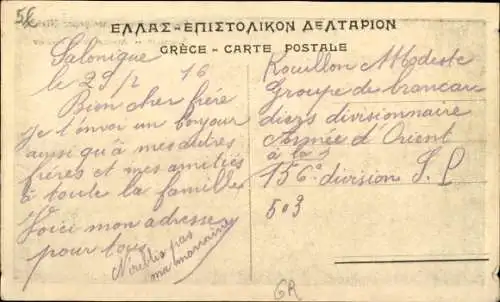 5€
ΕΛΛΑΣ-ΕΠΙΣΤΟΛΙΚΟΝ ΔΕΛΤΑΡΙΟΝ
GRÈCE - CARTE POSTALE
Salonique
le 29/2 16
Bien cher frére
Je t'envoi un bonjour
ainsi qu'à mes autres
fréres et mes amitiés
à toute la famille
Voici mon adresse
pour tous
N'oublis pas
ma marraine
Rouillon Modeste
Groupe de brancar
diers divisionnaire
Armée d'Orient
à la
156e division S. P
509
GR